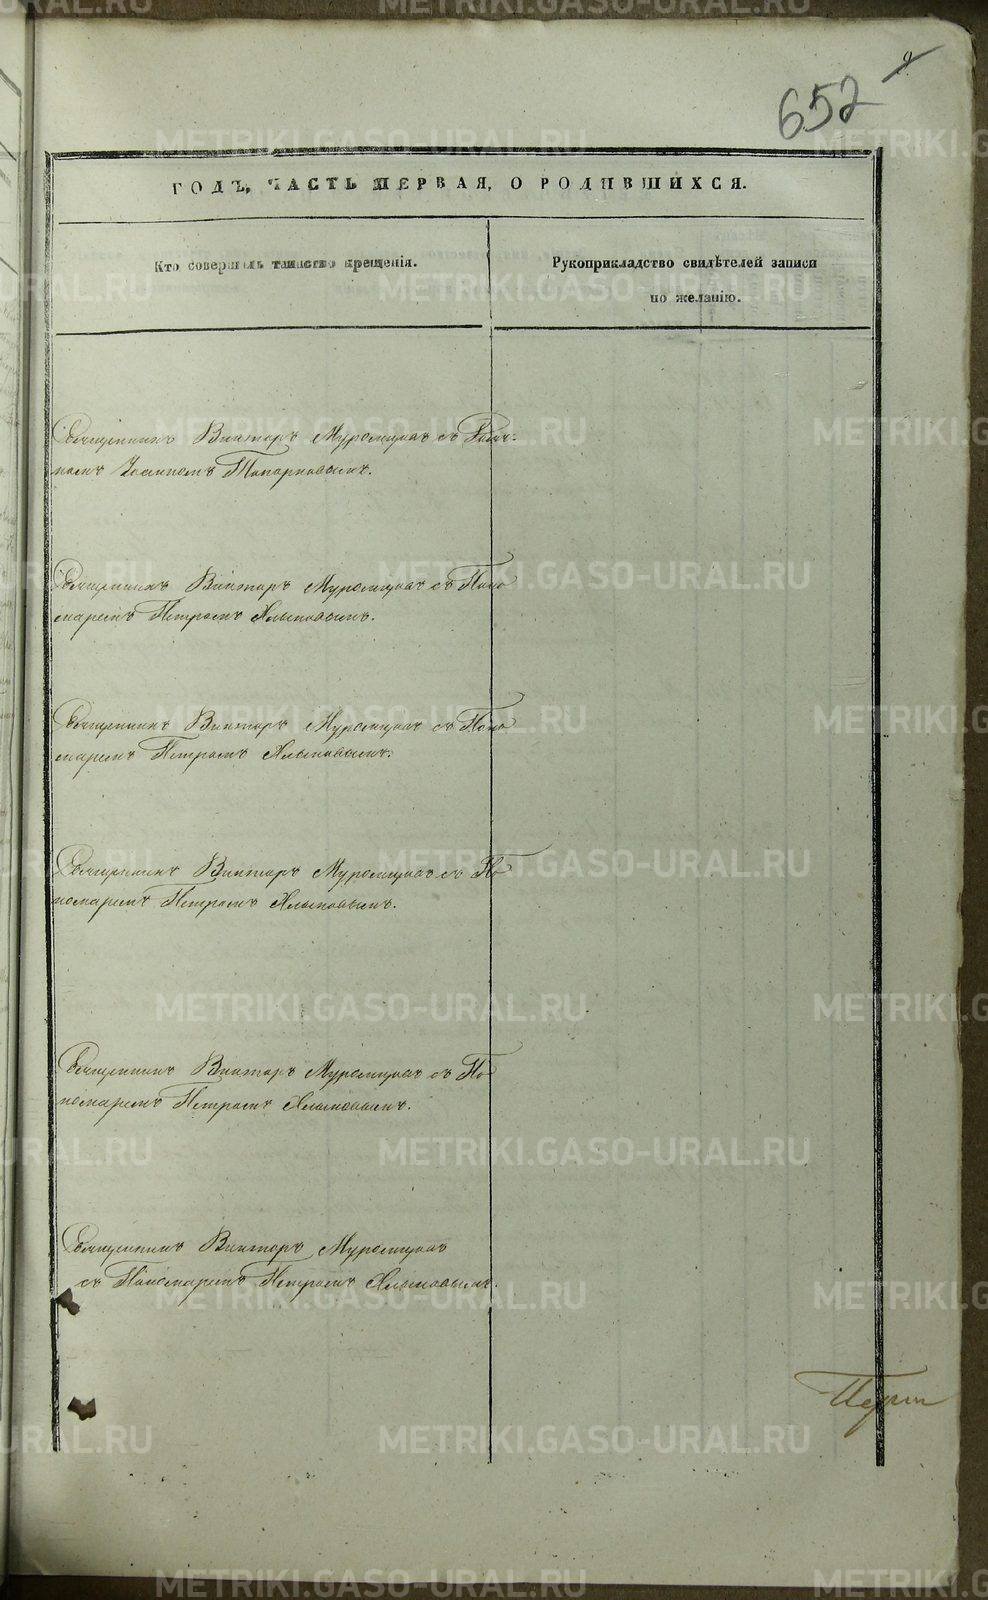 652
9
ГОДЪ, ЧАСТЬ ПЕРВАЯ, О РОДИВШИХСЯ.
Кто совершалъ таинство крещенія.
Рукоприкладство свидѣтелей записи
по желанію.
Священникъ Викторъ Муромцовъ съ
Топорковымъ.
Священникъ Викторъ Муромцовъ съ Поно
маремъ Петромъ Хлыновымъ.
Священникъ Викторъ Муромцовъ съ Поно
маремъ Петромъ Хлыновымъ.
Священникъ Викторъ Муромцовъ съ По
номаремъ Петромъ Хлыновымъ.
Священникъ Викторъ Муромцовъ съ По
номаремъ Петромъ Хлыновымъ.
Священникъ Викторъ Муромцовъ
съ Пономаремъ Петромъ Хлыновымъ.
METRIKI.GASO-URAL.RU